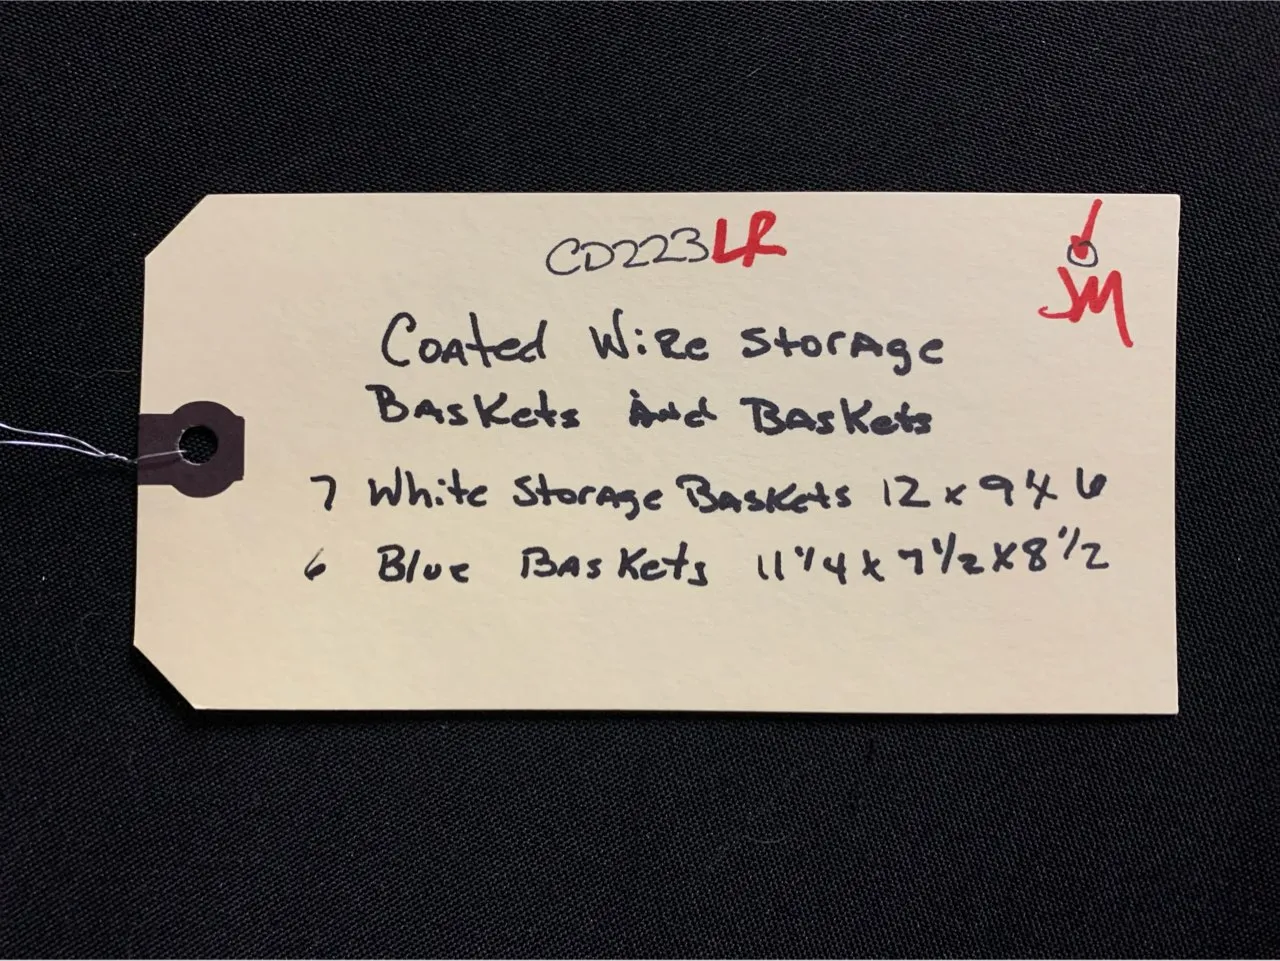 CD223LR
JM
Coated Wire Storage
Baskets and Baskets
7 White Storage Baskets 12 x 9 x 6
6 Blue Baskets 11 1/4 x 7 1/2 x 8 1/2